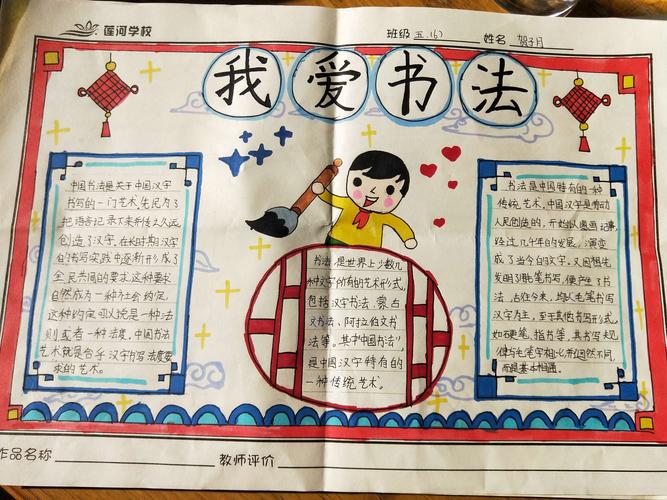 莲河学校
班级 五.(6) 姓名 贺子月
我爱书法
中国书法是关于中国汉字
书写的一门艺术,先民为了
把语言记录下来并传之久远,
创造了汉字,在长时期汉字
的书写实践中逐渐形成了
全民共同的要求,这种要求
自然成为一种社会约定,
这种约定可以说是一种法
则或者一种法度,中国书法
艺术就是合乎汉字书写法度要
求的艺术。
书法是世界上少数几
种文字所有的艺术形式,
包括汉字书法、蒙古
文书法、阿拉伯文书
法等。其中“中国书法”,
是中国汉字特有的
一种传统艺术。
书法是中国特有的一种
传统艺术,中国汉字是劳动
人民创造的,开始以图画记事,
经过几千年的发展,演变
成了当今的文字,又因祖先
发明了用毛笔书写,便产生了书
法,古往今来,均以毛笔书写
汉字为主,至于其他书写形式,
如硬笔、指书等,其书写规
律与毛笔字相比,并非迥然不同,
而是基本相通。
作品名称 教师评价